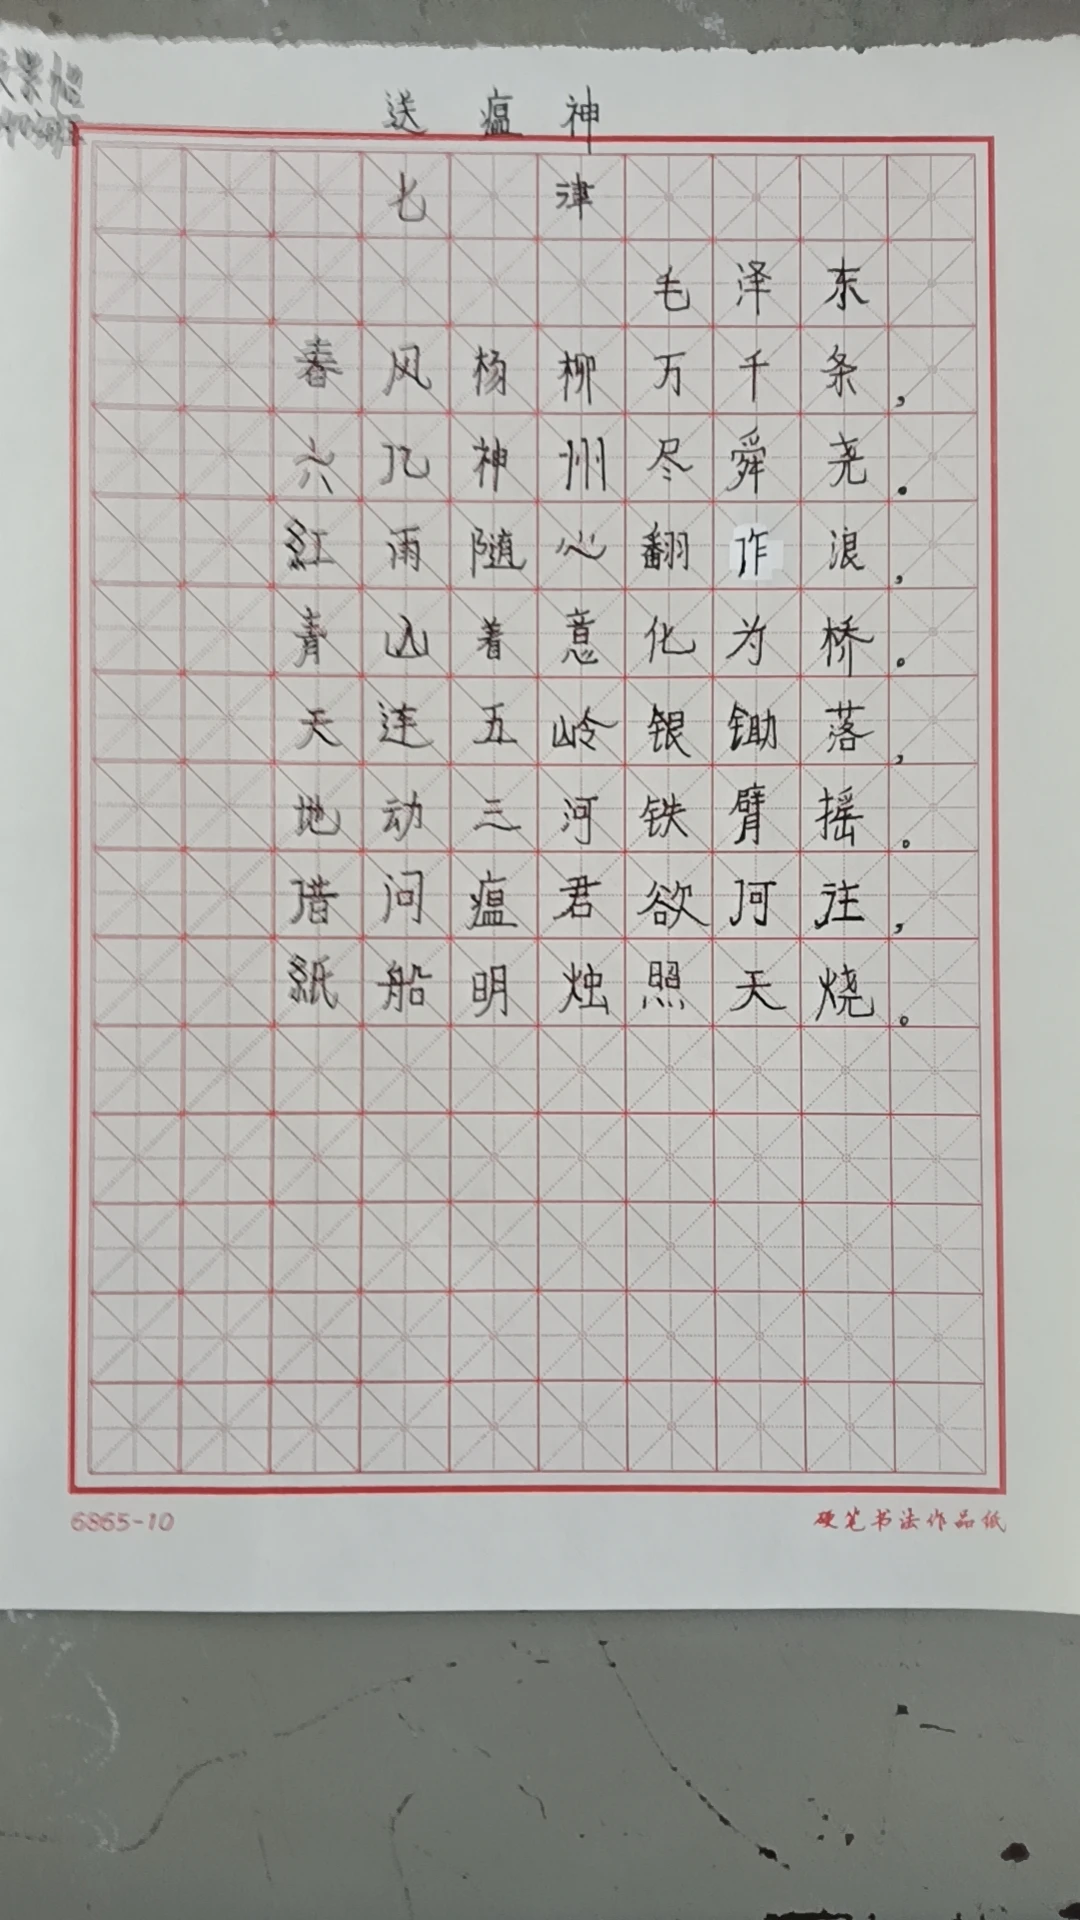 送瘟神
七津
毛泽东
春风杨柳万千条，
六亿神州尽舜尧。
紅雨随心翻作浪，
青山着意化为桥。
天连五岭银锄落，
地动三河铁臂摇。
借问瘟君欲何往，
紙船明烛照天烧。
6865-10 硬笔书法作品纸